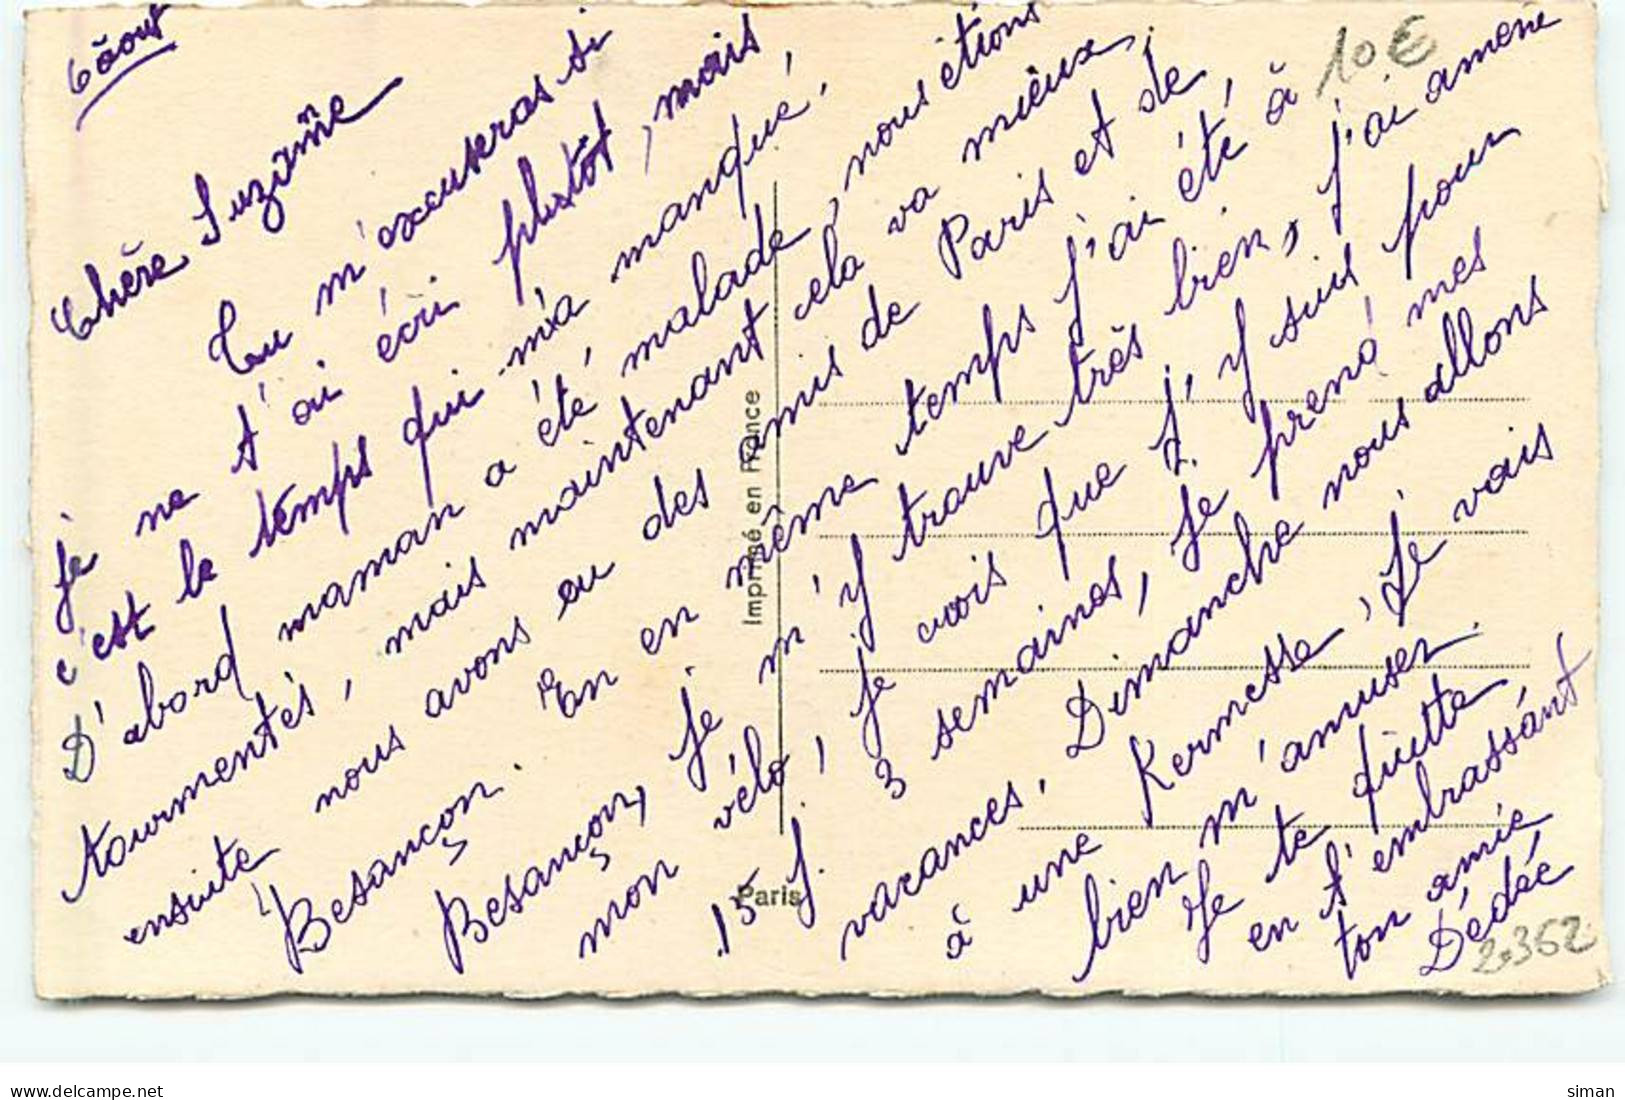 6 août
Chère Suzanne
Tu m'excuseras si
je ne t'ai écri plustôt, mais
c'est le temps qui m'a manqué,
D'abord maman a été malade, nous étions
tourmentés, mais maintenant cela va mieux,
ensuite nous avons eu des amis de Paris et de
Besançon. En en même temps j'ai été à
Besançon, je m'y trouve très bien, j'ai amené
mon vélo, je crois que j'y suis pour
15 j. 3 semaines, je prend mes
vacances. Dimanche nous allons
à une Kermesse, je vais
bien m'amuser.
Je te quitte
en t'embrassant
ton amie
Dédée
Imprimé en France
Paris
10€
2.362
www.delcampe.net
siman